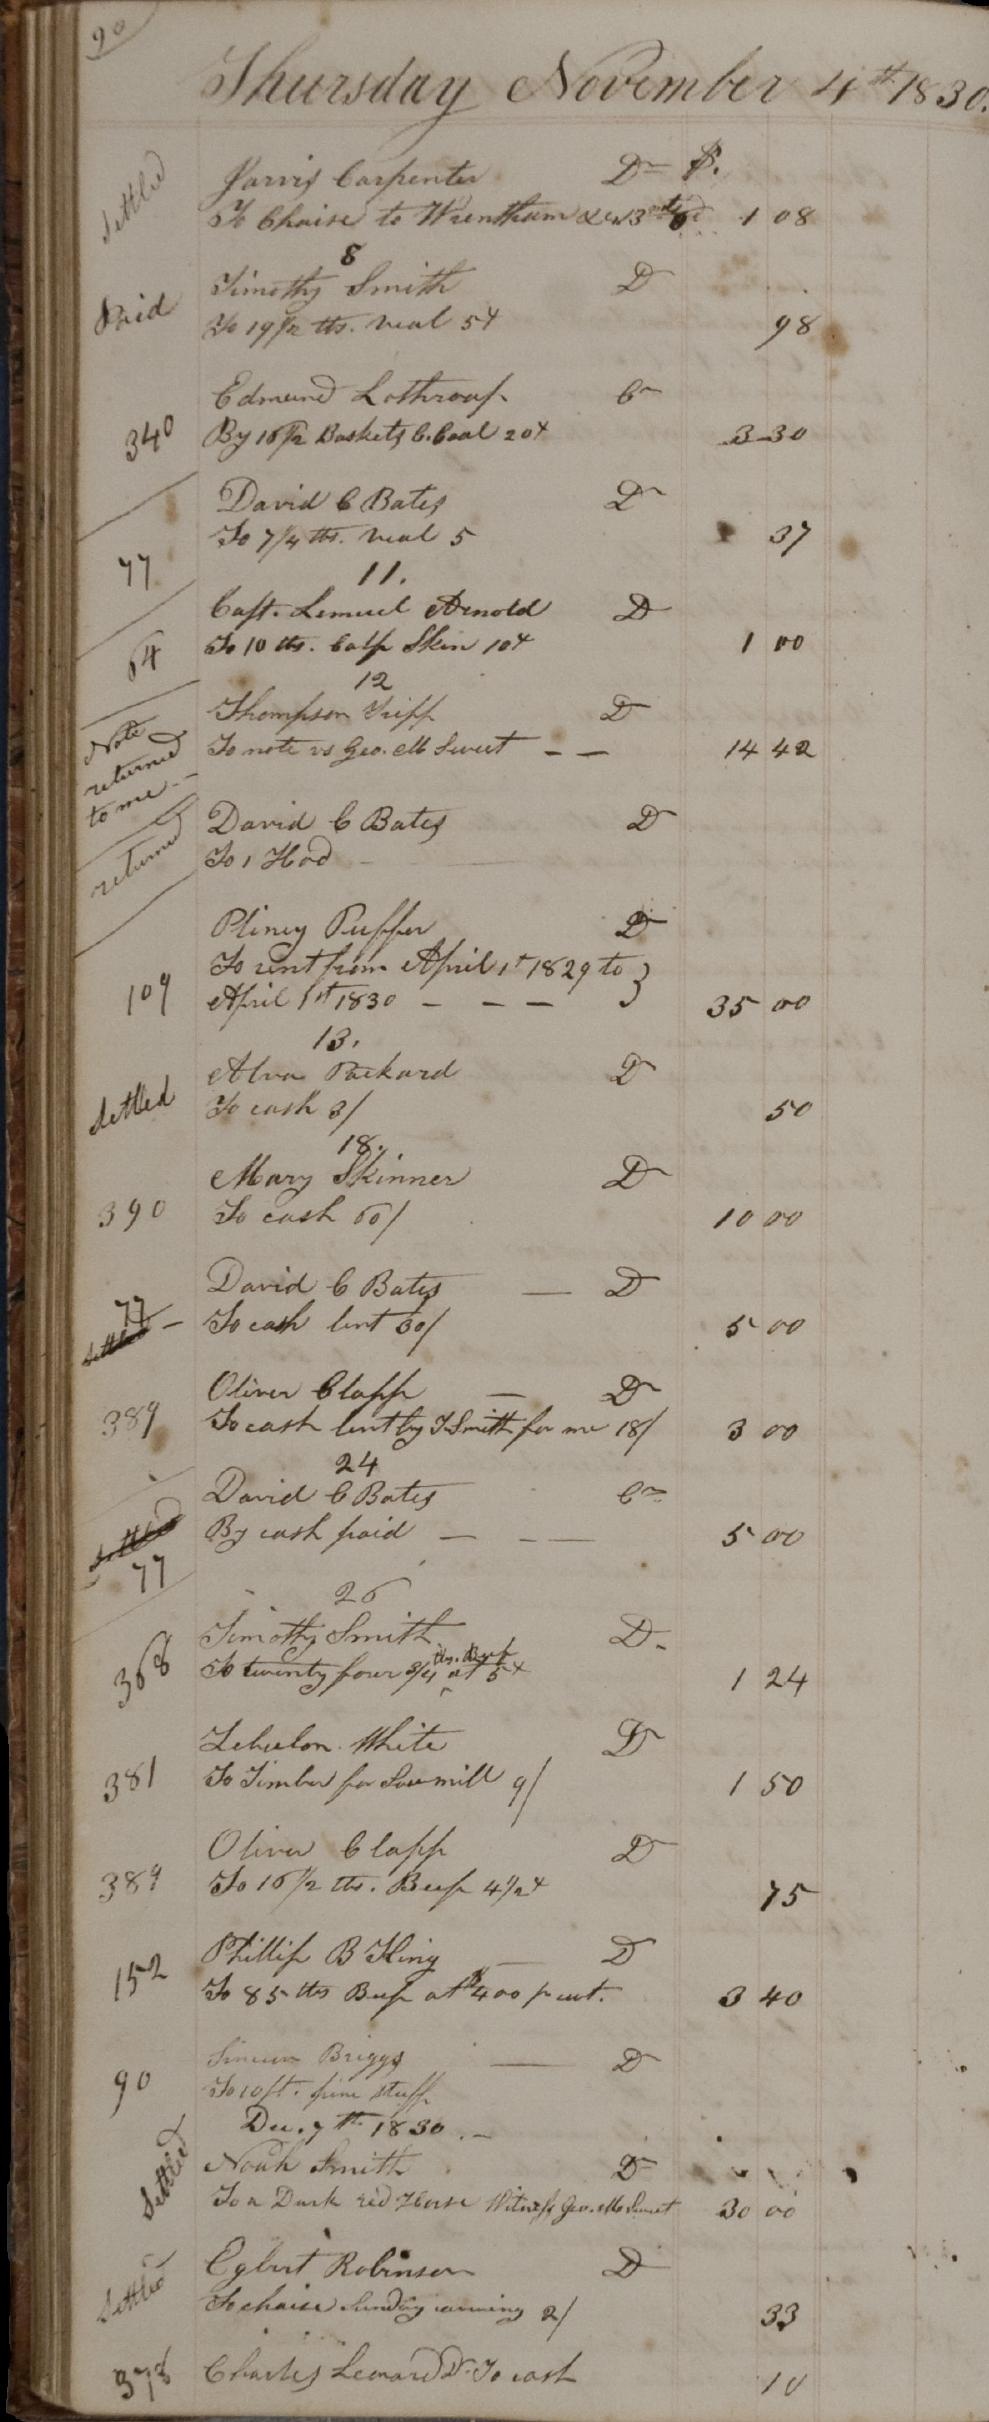 90
Thursday November 4th 1830.
Settled
Jarvis Carpenter Dr $.
To Chaise to Wrentham 1 08
8
Paid
Timothy Smith Dr
To 19 1/2 lbs. veal 5 98
Edmund Lothroup Cr
340
By 16 1/2 Baskets C. Coal 20 3 30
David C Bates Dr
77
To 7 1/4 lbs. veal 5 37
11.
Capt. Lemuel Arnold Dr
64
To 10 lbs. Calf Skin 10 1 00
12
Note returned to me
Thompson Tripp Dr
To note vs Geo. M Sweet — — 14 42
David C Bates Dr
returned
To 1 Hod
Pliney Puffer Dr
To rent from April 1st 1829 to }
109
April 1st 1830 — — — 35 00
13.
Alva Packard Dr
Settled
To cash 3/ 50
18.
Mary Skinner Dr
390
To cash 60/ 10 00
David C Bates — Dr
77
Settled
To cash lent 30/ 5 00
Oliver Clapp — Dr
389
To cash lent by T Smith for me 18/ 3 00
24
David C Bates Cr
Settled
77
By cash paid — — — 5 00
26
Timothy Smith Dr
368
To twenty four 3/4 lbs. Beef at 5 1 24
Zebulon White Dr
381
To Timber for Sawmill 9/ 1 50
Oliver Clapp Dr
389
To 16 1/2 lbs. Beef 4 1/2 75
Phillip B King — Dr
152
To 85 lbs Beef at $4 00 p cwt. 3 40
Simeon Briggs — Dr
90
To 10 ft. pine stuff
Dec. 7th 1830. —
Settled
Noah Smith Dr
To a Dark red Horse Witness Geo. M Sweet 30 00
Settled
Egbert Robinson Dr
To chaise Sunday evening 2/ 33
373
Charles Leonard Dr To cash 10